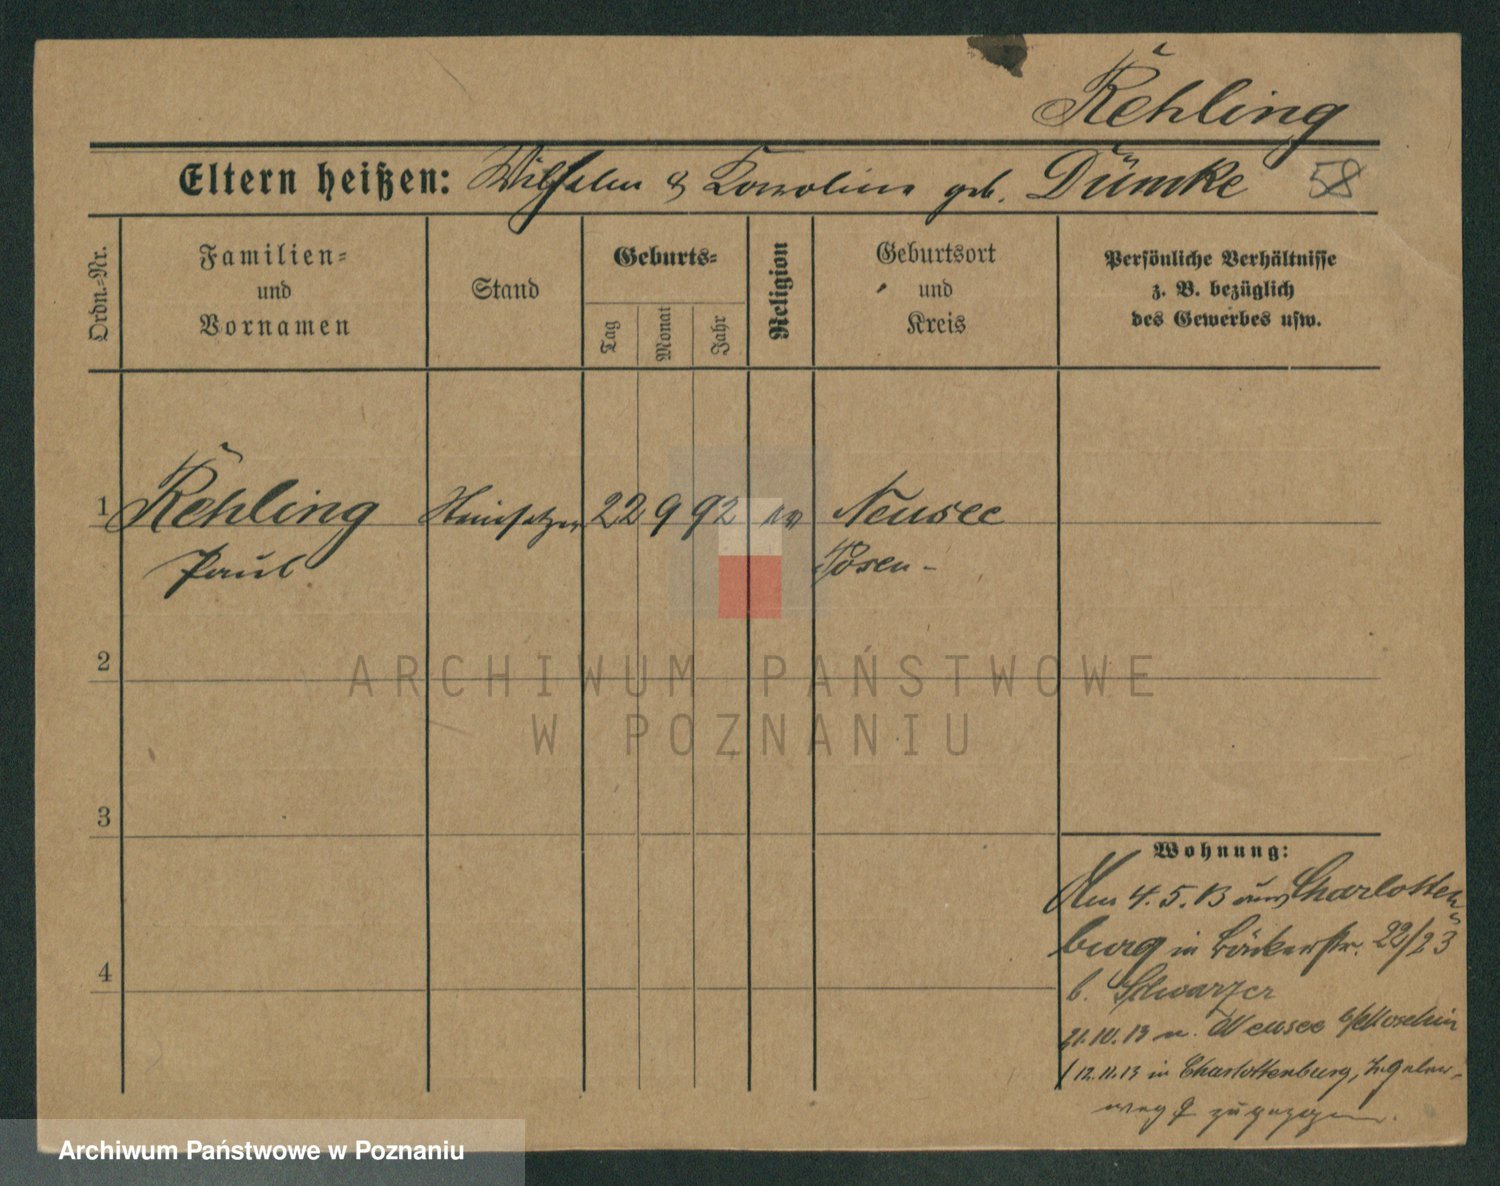 Rehling
Eltern heißen: Wilhelm & Karoline geb. Dümke 58
Ordn.-Nr.
Familien-
und
Vornamen
Stand
Geburts-
Tag
Monat
Jahr
Religion
Geburtsort
und
Kreis
Persönliche Verhältnisse
z. B. bezüglich
des Gewerbes usw.
1 Rehling Steinsetzer 22 9 92 ev Neusee
Paul Posen
2
3
4
Wohnung:
Am 4.5.13 aus Charlotten
burg in Bäckerstr. 22/23
b. Schwarzer
21.10.13 n. Neusee b/Moschin
12.11.13 in Charlottenburg,
zugezogen.
ARCHIWUM PAŃSTWOWE
W POZNANIU
Archiwum Państwowe w Poznaniu